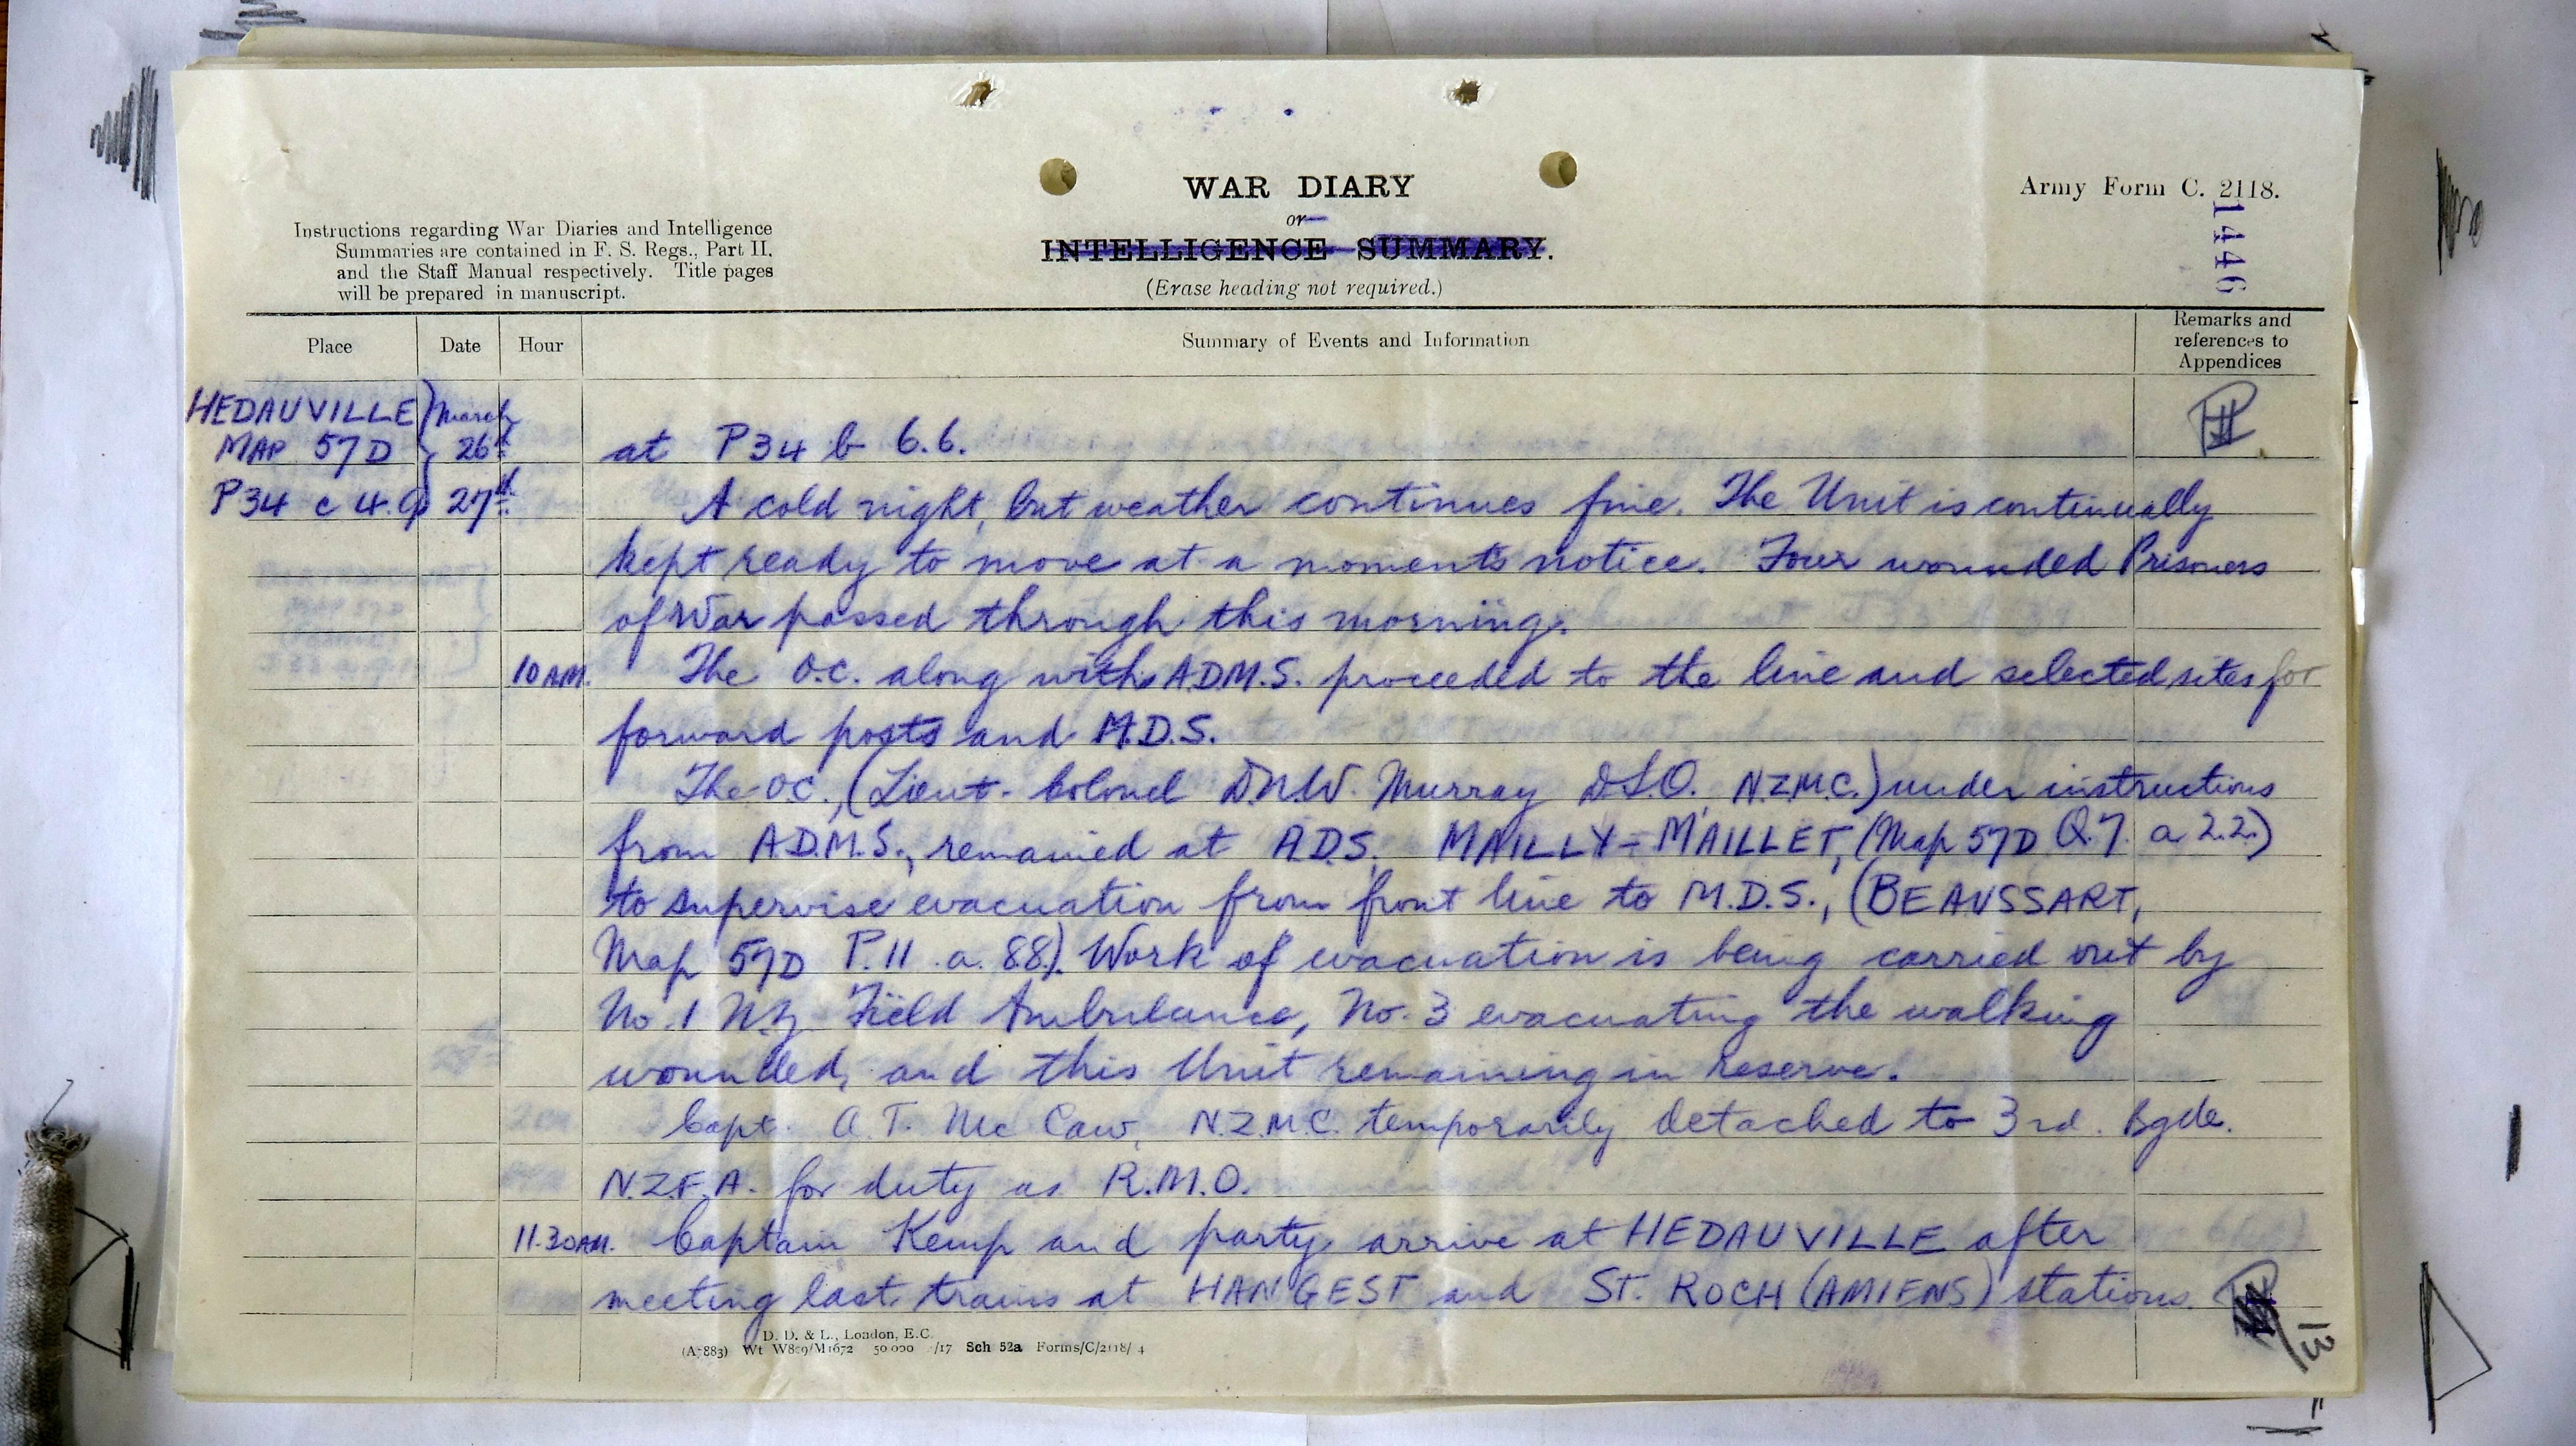 WAR DIARY
or
INTELLIGENCE SUMMARY.
(Erase heading not required.)
Army Form C. 2118.
1446
Instructions regarding War Diaries and Intelligence
Summaries are contained in F. S. Regs., Part II,
and the Staff Manual respectively. Title pages
will be prepared in manuscript.
Place Date Hour Summary of Events and Information Remarks and
references to
Appendices
HEDAUVILLE March
MAP 57D 26th at P34 b 6.6.
P34 c 4.9 27th A cold night, but weather continues fine. The Unit is continually
kept ready to move at a moments notice. Four wounded Prisoners
of War passed through this morning.
10 AM. The O.C. along with A.D.M.S. proceeded to the line and selected sites for
forward posts and M.D.S.
The O.C., (Lieut-Colonel D.N.W. Murray D.S.O. N.Z.M.C.) under instructions
from A.D.M.S., remained at A.D.S. MAILLY-MAILLET, (Map 57D Q.7. a 2.2.)
to supervise evacuation from front line to M.D.S., (BEAUSSART,
Map 57D P.11 .a. 8.8.). Work of evacuation is being carried out by
No. 1 N.Z. Field Ambulance, No. 3 evacuating the walking
wounded, and this Unit remaining in reserve.
Capt. A.T. McCaw, N.Z.M.C. temporarily detached to 3rd. Bgde.
N.Z.F.A. for duty as R.M.O.
11.30 AM. Captain Kemp and party arrive at HEDAUVILLE after
meeting last trains at HANGEST and ST. ROCH (AMIENS) stations.
13
D. D. & L., London, E.C.
(A7883) Wt W859/M1672 50 000 /17 Sch 52a Forms/C/2118/ 4